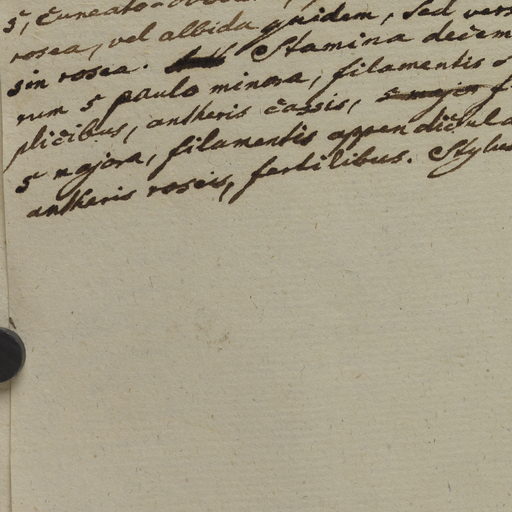 5, cuneato-
rosea, vel albida quidem, sed vers
sin rosea. Stamina decem
rum 5 paulo minora, filamentis
plicibus, antheris cassis,
5 majora, filamentis appendicula
antheris roseis, fertilibus. Stylus